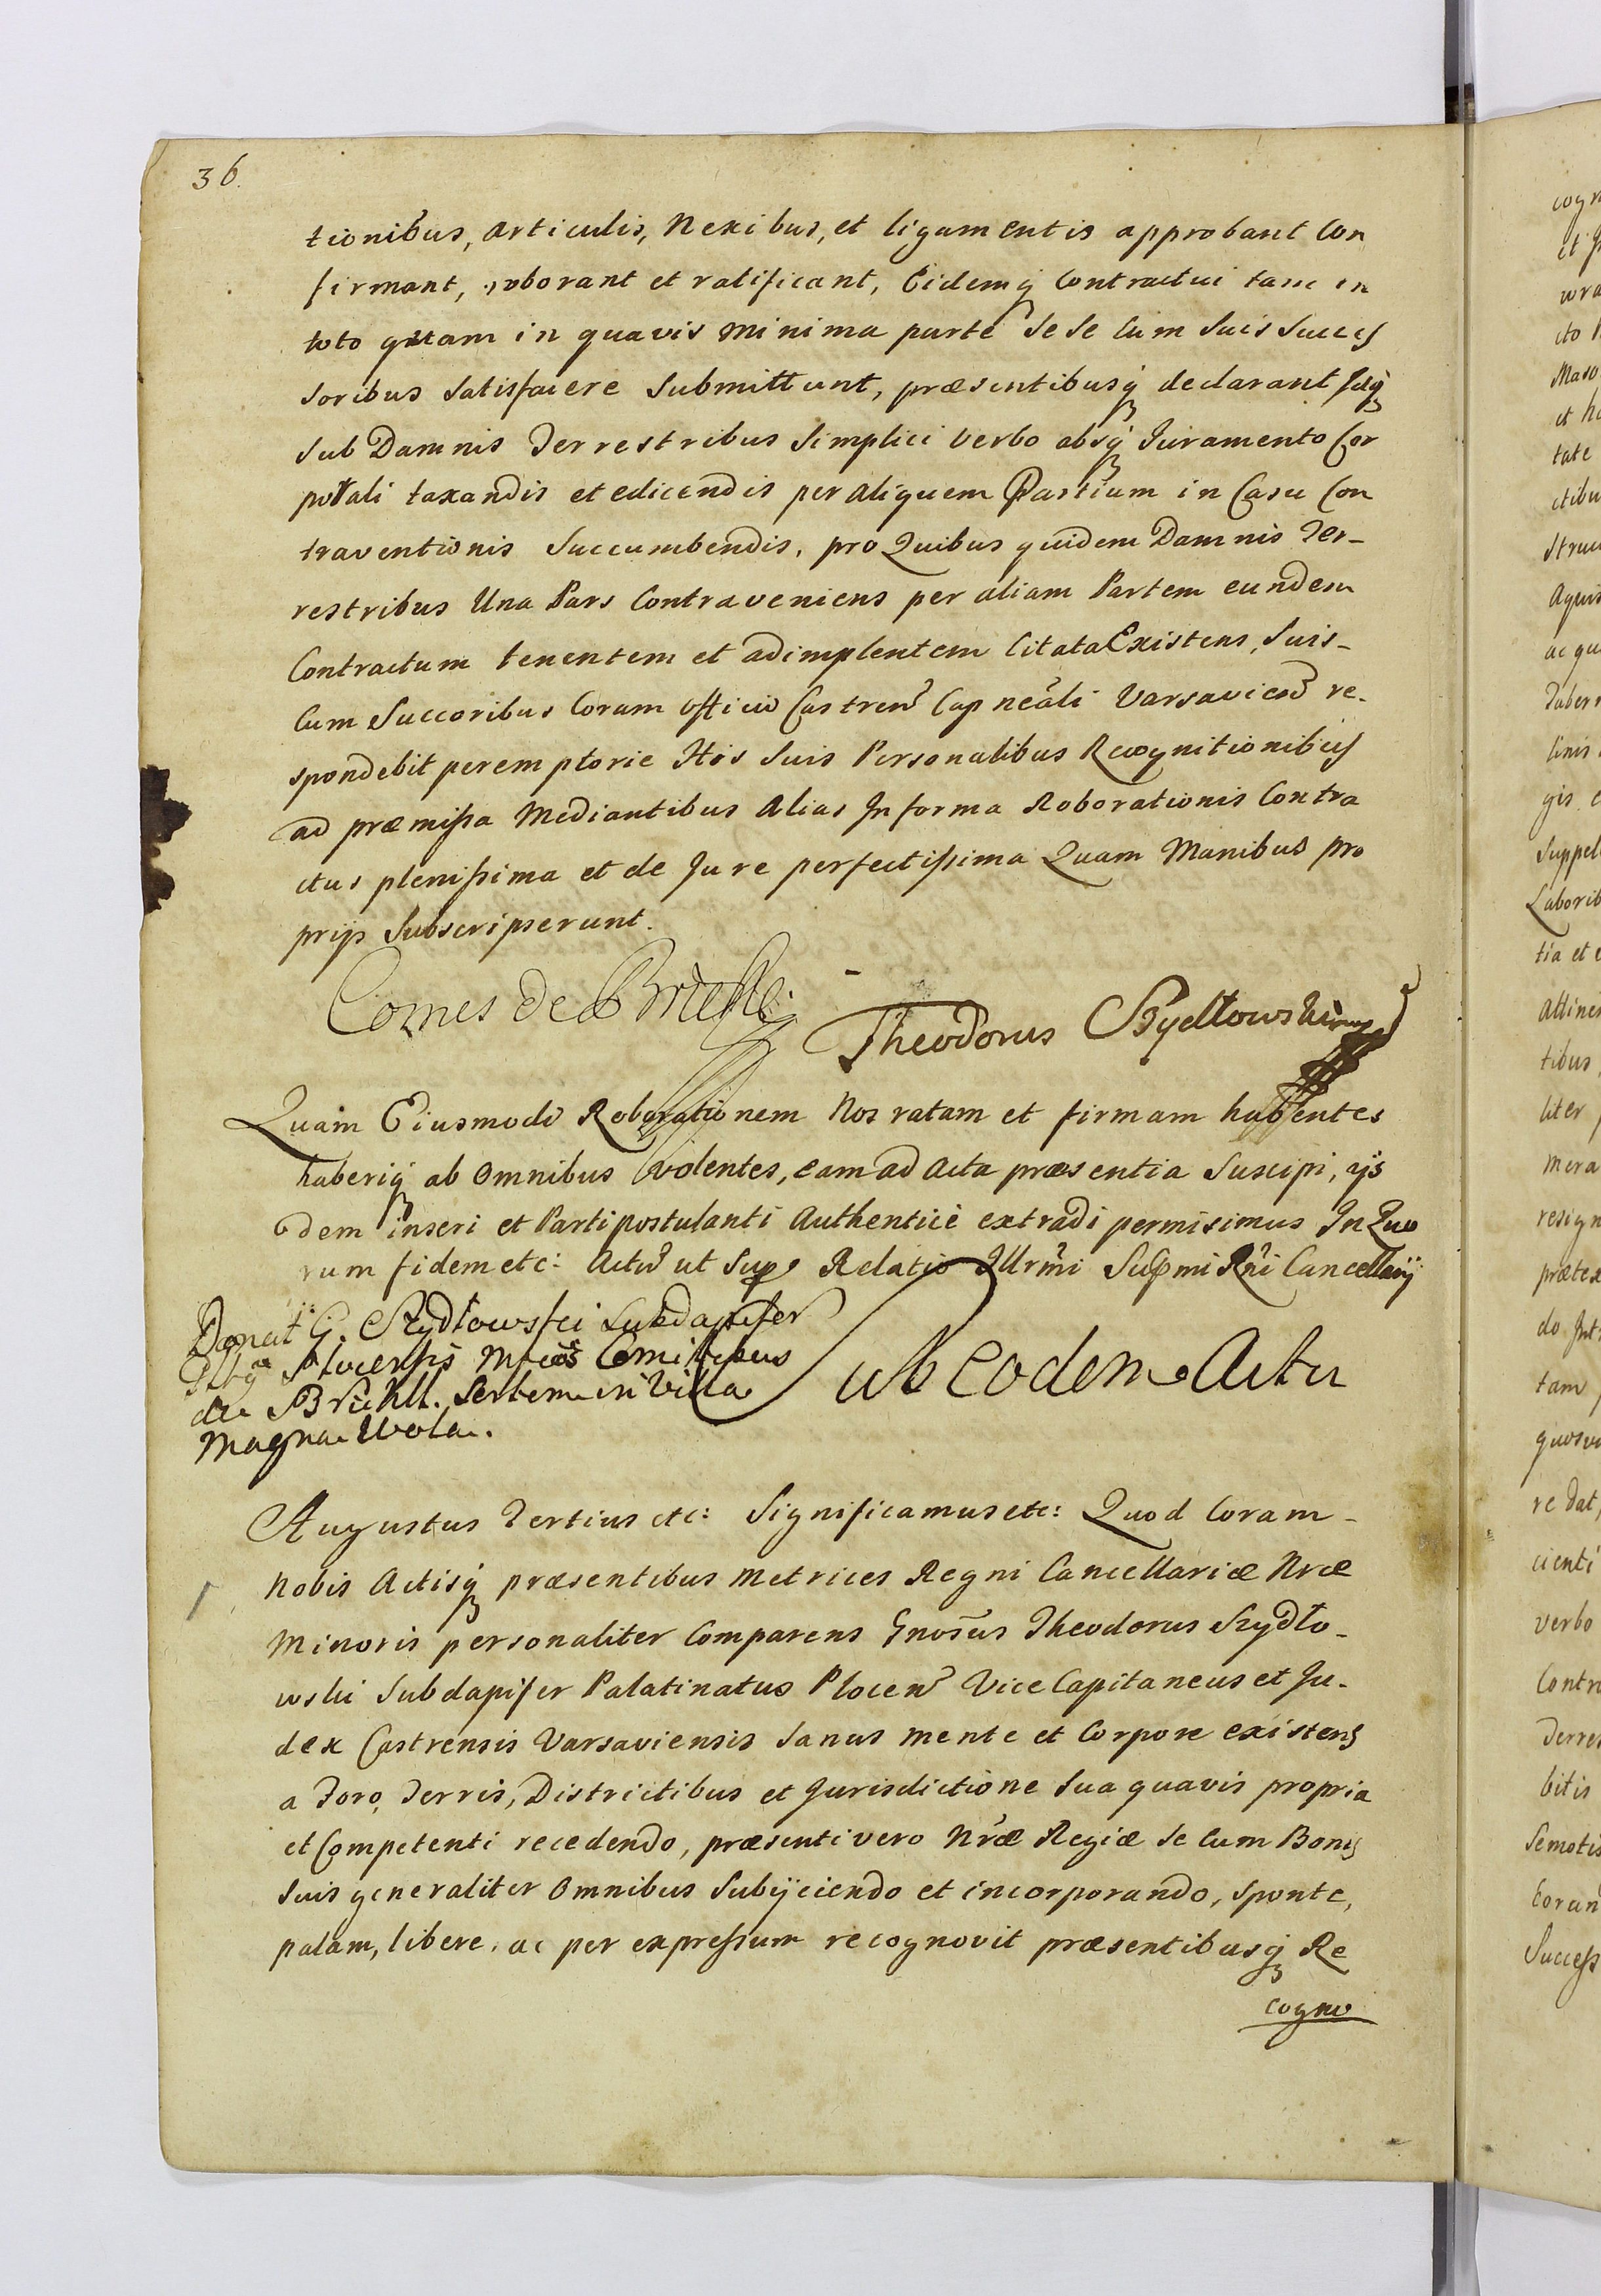 36.
tionibus, articulis, Nexibus, et ligamentis approbant Con
firmant, roborant et ratificant, Eidemq̃ Contractui tam in
toto quam in quavis minima parte Se Se Cum Suis Succes
soribus Satisfacere Submittunt, præsentibusq̃ declarant Idq̃
Sub Damnis Terrestribus Simplici verbo absq̃ Juramento Cor
porali taxandis et edicendis per aliquem Partium in Casu Con
traventionis Succumbendis, pro Quibus quidem Damnis Ter-
restribus Una Pars Contraveniens per aliam Partem eundem
Contractum tenentem et adimplentem Citata Existens, Suis-
Cum Succoribus Coram officio Castren̄ Capneāli Varsavien̄ re-
spondebit peremptorie His Suis Personalibus Recognitionibus
ad præmissa Mediantibus Alias In forma Roborationis Contra
ctus plenissima et de Jure perfectissima Quam Manibus pro
prijs Subscripserunt.
Comes de Brühl
Theodorus Szydłowski
Quam Eiusmodi Roborationem Nos ratam et firmam habentes
haberiq̃ ab omnibus volentes, eam ad Acta præsentia Suscipi, ijs
dem inseri et Parti postulanti Authentice extradi permisimus In Quo
rum fidem etc: Actū ut Sup̱ Relatio Illrm̃i Sup̱mi Rñi Cancellarij
Donat G. Szydłowski Subdapifer
Plocensis Comiti
de Brühl. Sortem in Villa
Magna Wola.
Sub Eodem Actu
Augustus Tertius etc: Significamus etc: Quod Coram-
Nobis Actisq̃ præsentibus Metrices Regni Cancellariæ Nræ
Minoris personaliter Comparens Gnosũs Theodorus Szydło-
wski Subdapifer Palatinatus Plocen̄ Vice Capitaneus et Ju-
dex Castrensis Varsaviensis Sanus mente et Corpore existens
a Foro, Terris, Districtibus et Jurisdictione Sua quavis propria
et Competenti recedendo, præsenti vero Nr̃æ Regiæ Se Cum Bonis
Suis generaliter Omnibus Subijciendo et incorporando, sponte,
palam, libere, ac per expressum recognovit præsentibusq̃ Re
cogno